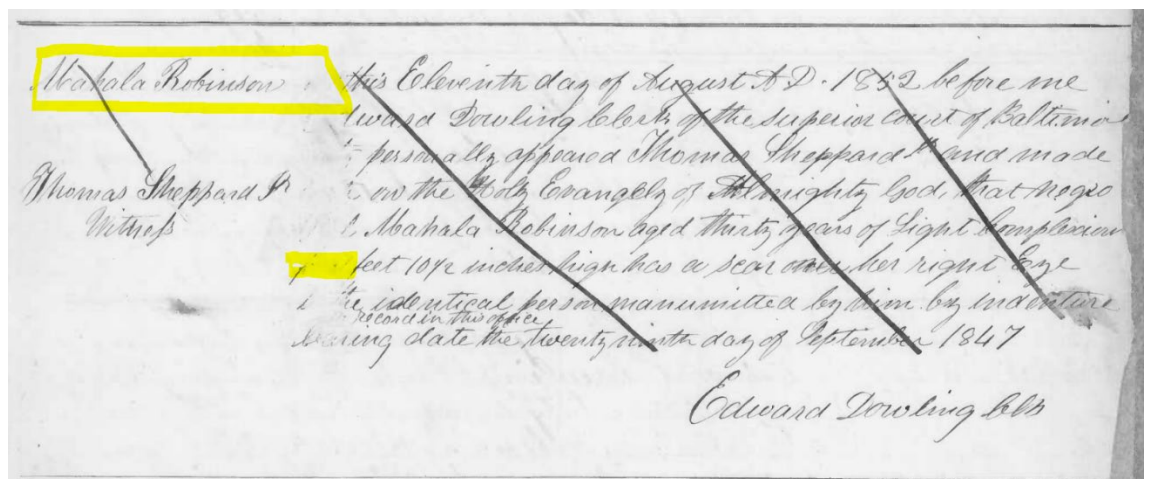 Mahala Robinson
this Eleventh day of August A.D. 1852 before me
ward Dowling Clerk of the superior court of Baltimore
personally appeared Thomas Sheppard Jr and made
on the Holy Evangely of Almighty God, that negro
Thomas Sheppard Jr
Witness
Mahala Robinson aged thirty years of Light Complexion
feet 10½ inches high has a scar over her right Eye
the identical person manumitted by him by indenture
record in this office
bearing date the twenty ninth day of September 1847
Edward Dowling Clk